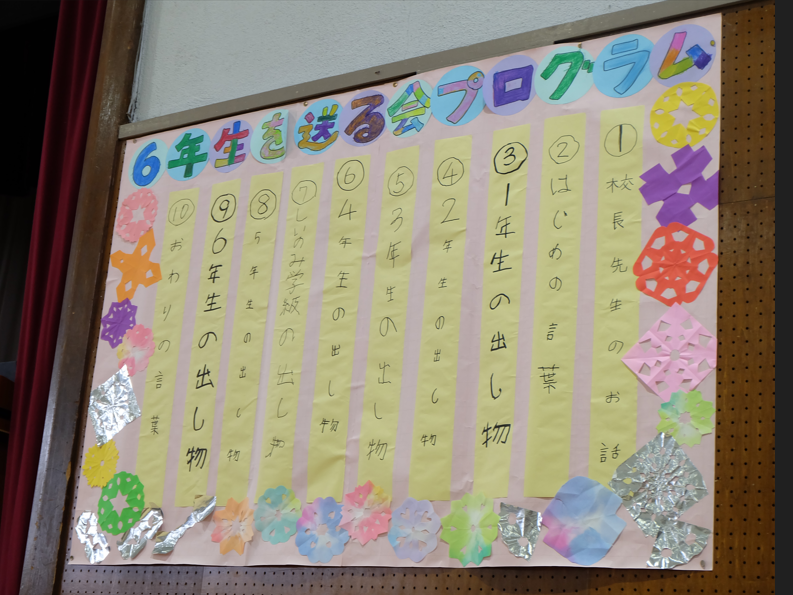 6年生を送る会プログラム
①校長先生のお話
②はじめの言葉
③1年生の出し物
④2年生の出し物
⑤3年生の出し物
⑥4年生の出し物
⑦しいのみ学級の出し物
⑧5年生の出し物
⑨6年生の出し物
⑩おわりの言葉